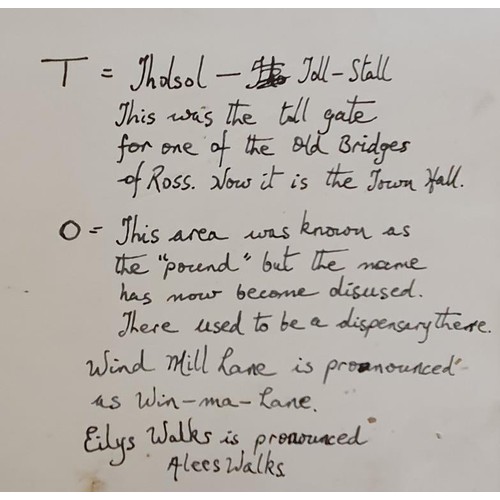 T = Tholsol - Toll-Stall
This was the toll gate
for one of the Old Bridges
of Ross. Now it is the Town Hall.
O = This area was known as
the "pound" but the name
has now become disused.
There used to be a dispensary there.
Wind Mill Lane is pronounced
as Win-ma-Lane.
Eilys Walks is pronounced
Alees Walks